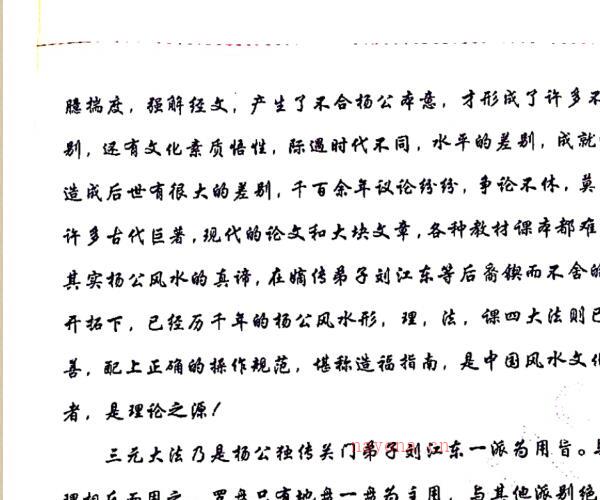 臆揣度，强解经文，产生了不合杨公本意，才形成了许多不
别，还有文化素质悟性，际遇时代不同，水平的差别，成就
造成后世有很大的差别，千百余年议论纷纷，争论不休，莫
许多古代巨著，现代的论文和大块文章，各种教材课本都难
其实杨公风水的真谛，在嫡传弟子刘江东等后裔锲而不舍的
开拓下，已经历千年的杨公风水形，理，法，课四大法则已
善，配上正确的操作规范，堪称造福指南，是中国风水文化
者，是理论之源！
三元大法乃是杨公独传关门弟子刘江东一派为用旨。
理相兵而用之，罗盘只有地盘一盘为主用，与其他派别绝